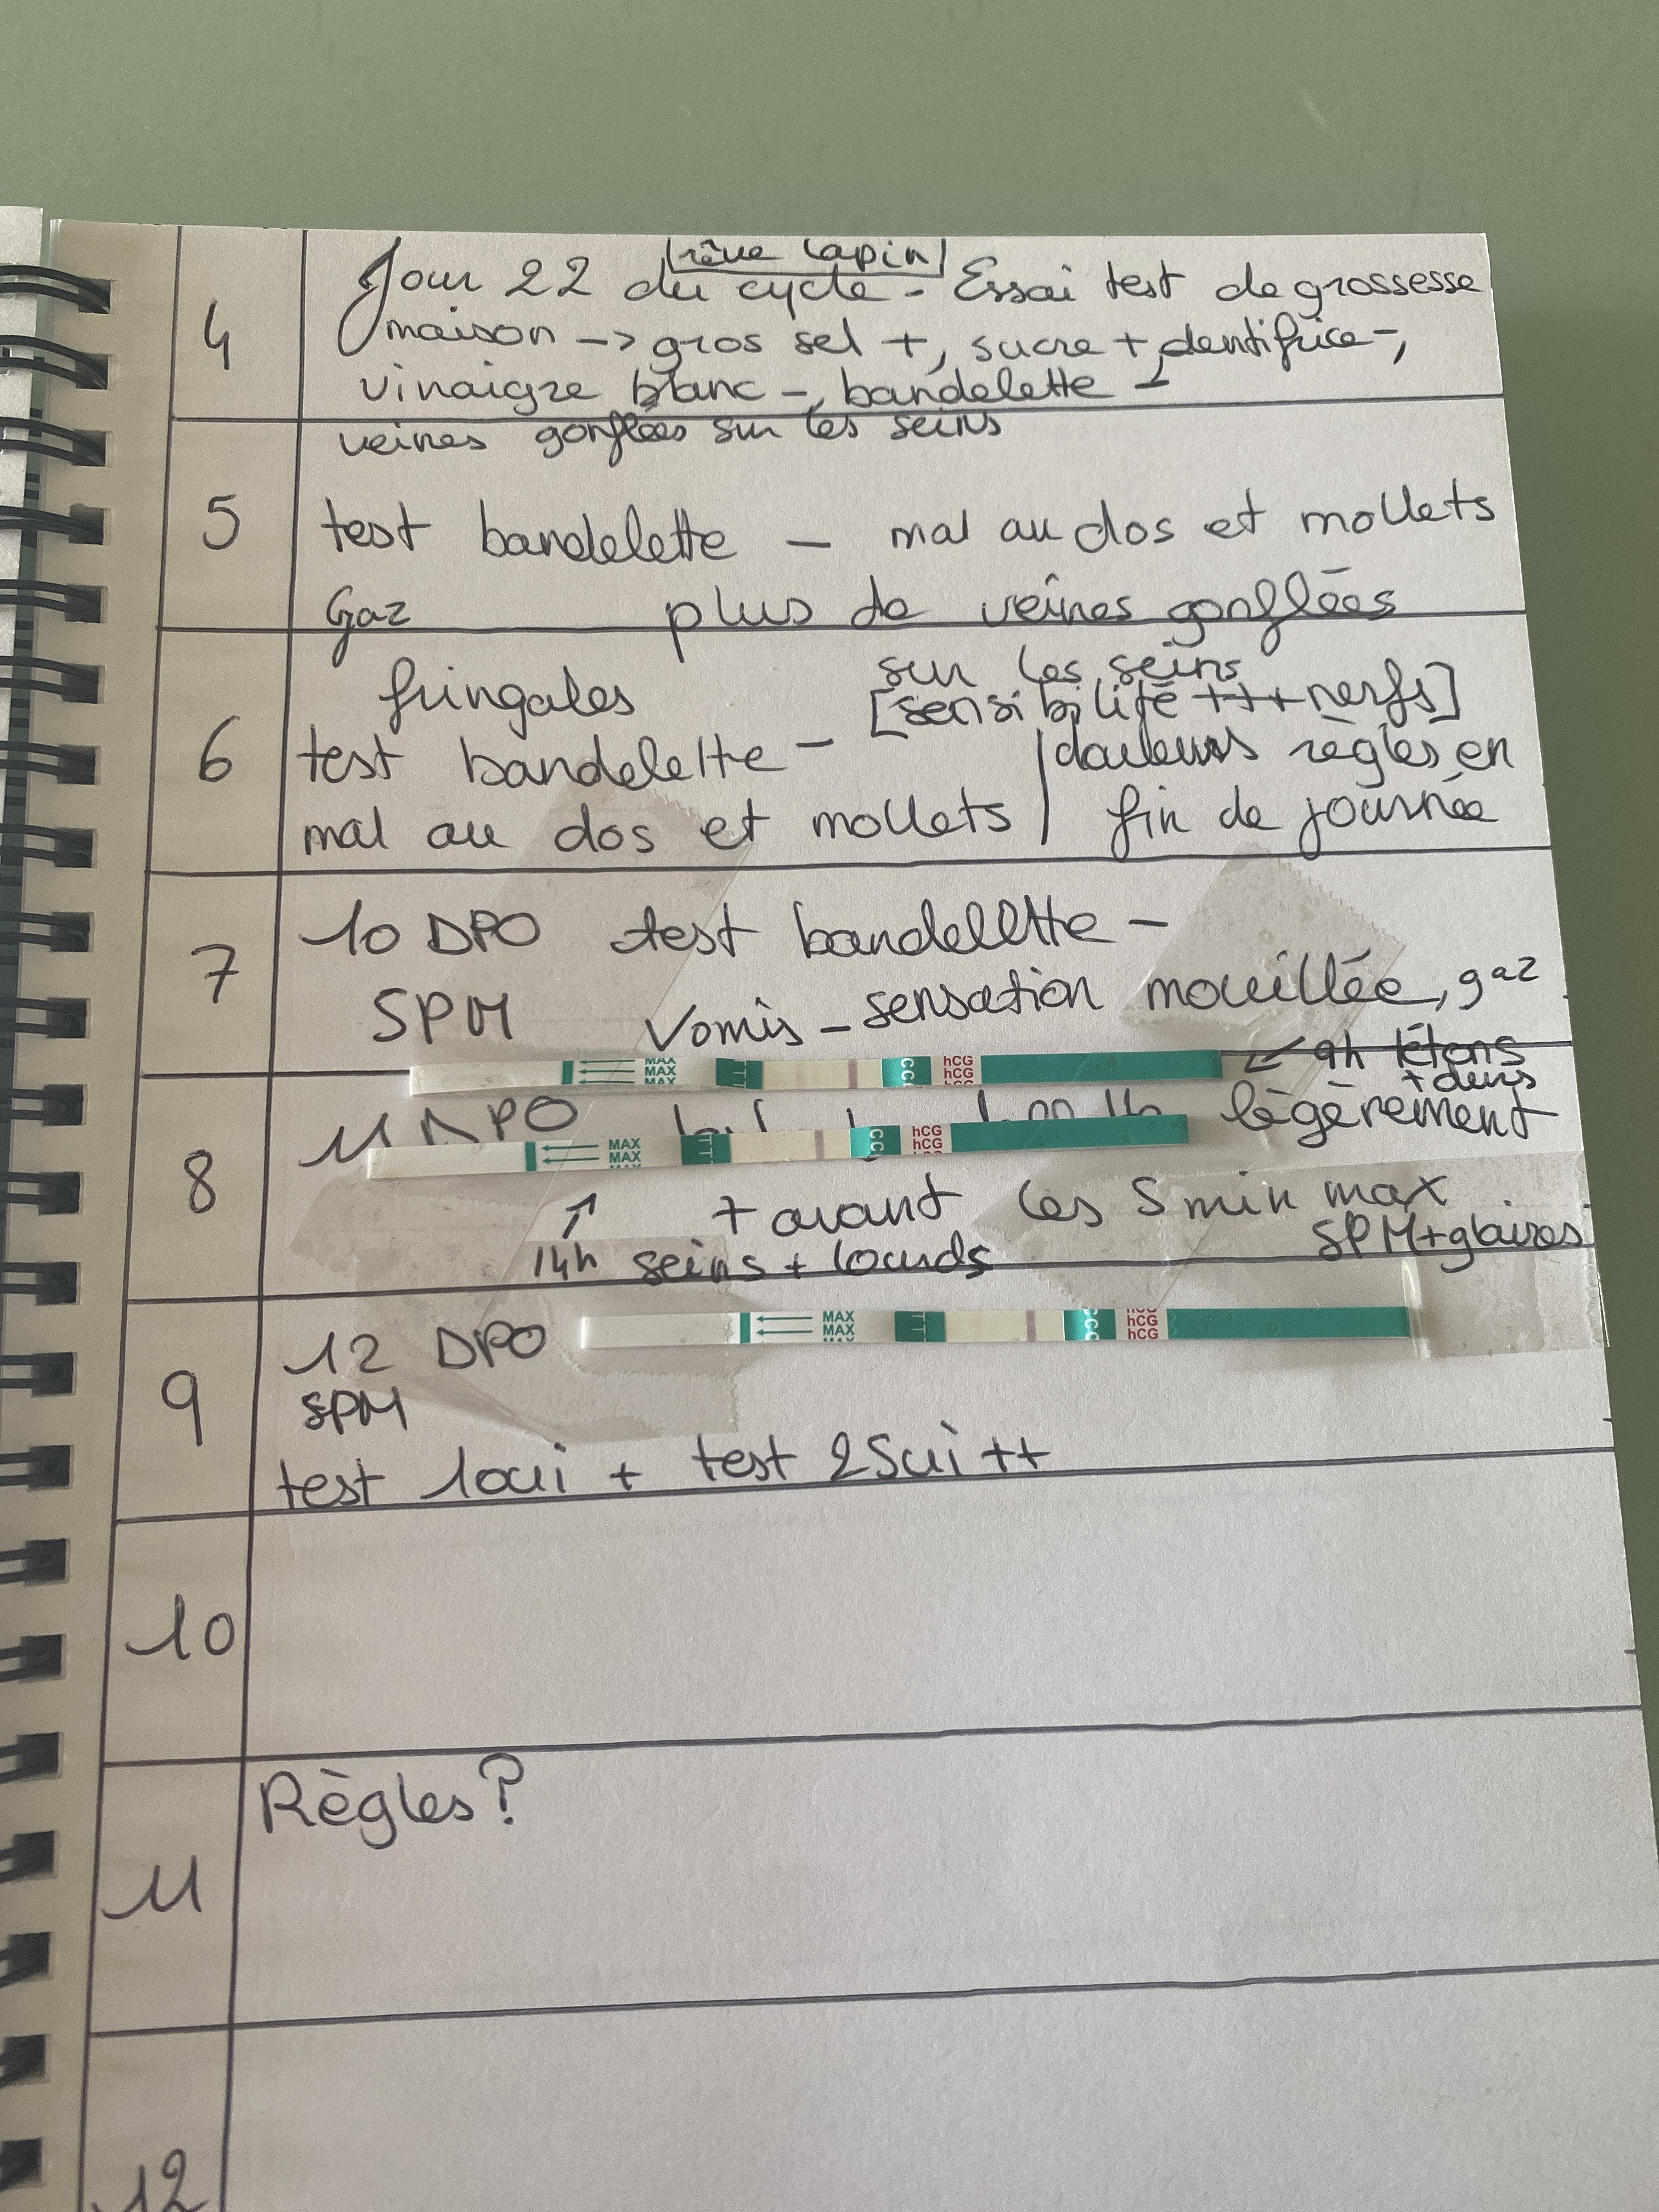 4
rêve lapin
Jour 22 du cycle - Essai test de grossesse
maison -> gros sel +, sucre + dentifrice -,
vinaigre blanc -, bandelette -
veines gonflées sur les seins
5
test bandelette - mal au dos et mollets
Gaz plus de veines gonflées
sur les seins
6
fringales [sensibilité +++ nerfs]
test bandelette - douleurs règles en
mal au dos et mollets fin de journée
7
10 DPO test bandelette -
SPM Vomis - sensation mouillée, gaz
MAX
MAX
MAX
TT
CC
hCG
hCG
hCG
9h tétons
+ durs
8
11 DPO légèrement
MAX
MAX
MAX
TTT
CCC
hCG
hCG
hCG
+ avant les 5 min max
14h seins + lourds SPM + glaires
9
12 DPO
MAX
MAX
MAX
TT
CCC
hCG
hCG
hCG
SPM
test 10ui + test 25ui ++
10
11
Règles?
12